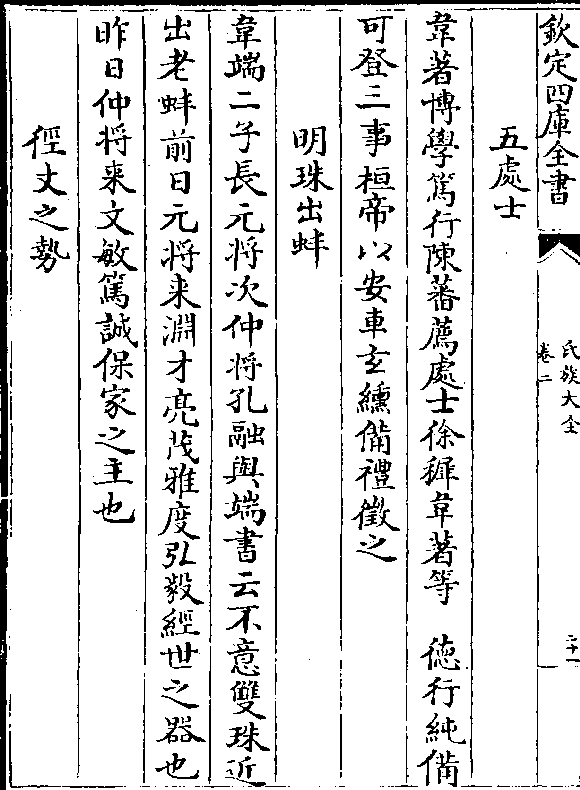 欽定四庫全書
氏族大全
卷二
二十一
五處士
韋著博學篤行陳蕃薦處士徐穉韋著等 德行純備
可登三事桓帝以安車玄纁備禮徵之
明珠出蚌
韋端二子長元将次仲将孔融與端書云不意雙珠近
出老蚌前日元将来淵才亮茂雅度弘毅經世之器也
昨日仲将来文敏篤誠保家之主也
徑丈之勢